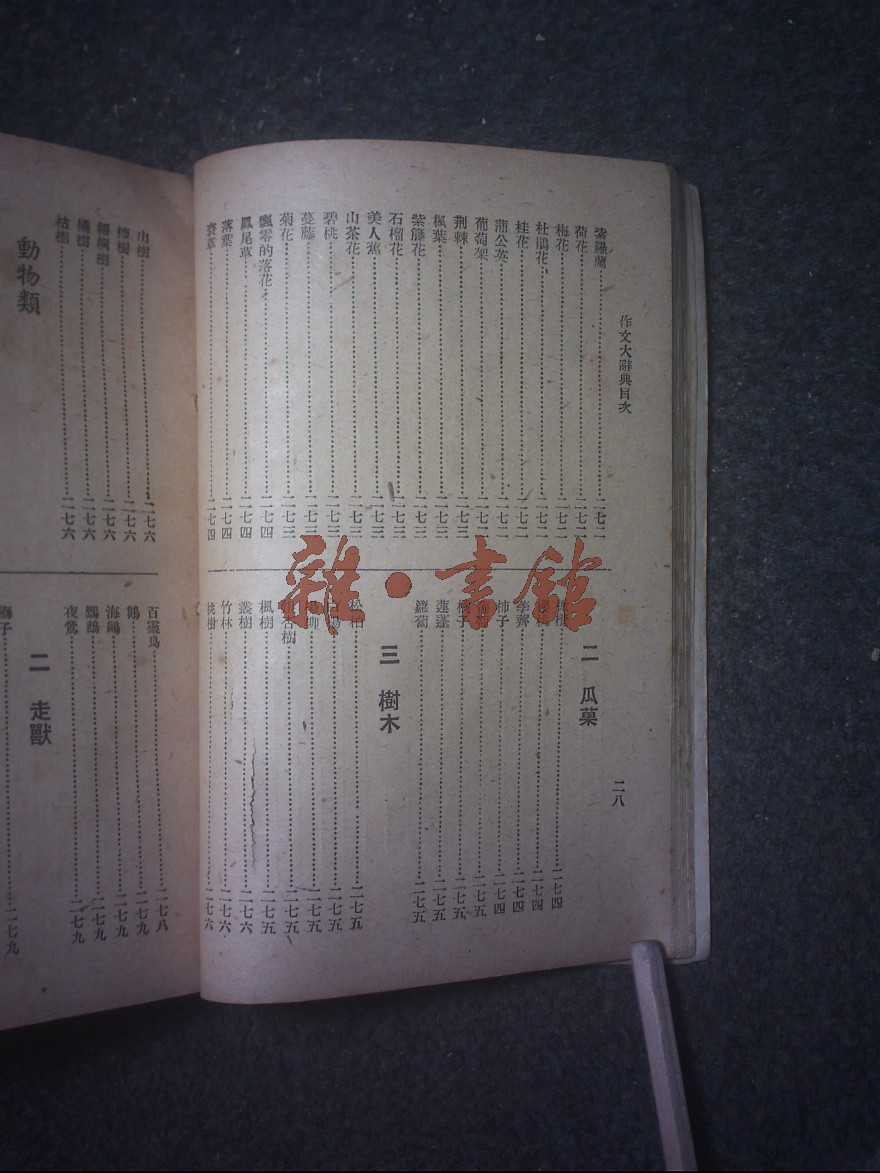 作文大辭典目次
二八
紫羅蘭……二七二
荷花……二七二
梅花……二七二
杜鵑花……二七二
桂花……二七二
蒲公英……二七二
葡萄架……二七二
荆棘……二七三
楓葉……二七三
紫藤花……二七三
石榴花……二七三
美人蕉……二七三
山茶花……二七三
碧桃……二七三
蔓藤……二七三
菊花……二七三
飄零的落花……二七四
鳳尾草……二七四
落葉……二七四
草……二七四
二 瓜菓
二七四
二七四
荸薺……二七四
柿子……二七四
二七五
子……二七五
蓮蓬……二七五
蘿蔔……二七五
三 樹木
松柏……二七五
二七五
柳……二七五
銀杏樹……二七五
楓樹……二七五
叢樹……二七六
竹林……二七六
桃樹……二七六
山樹……二七六
樹……二七六
梧桐樹……二七六
橘樹……二七六
枯樹……二七六
動物類
百靈鳥……二七八
鷓……二七九
海鷗……二七九
鸚鵡……二七九
夜鶯……二七九
二 走獸
獅子……二七九
雜·書館